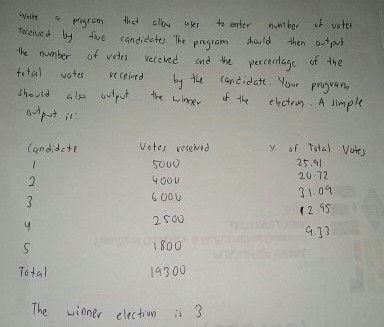 Write a program that allow user to enter number of votes
received by five candidates. The program should then output
the number of votes received and the percentage of the
total votes received by the candidate. Your program
should also output the winner of the election. A simple
output is:
Candidate Votes received % of Total Votes
1 5000 25.91
2 4000 20.72
3 6000 31.09
4 2500 12.95
5 1800 9.33
Total 19300
The winner election is 3